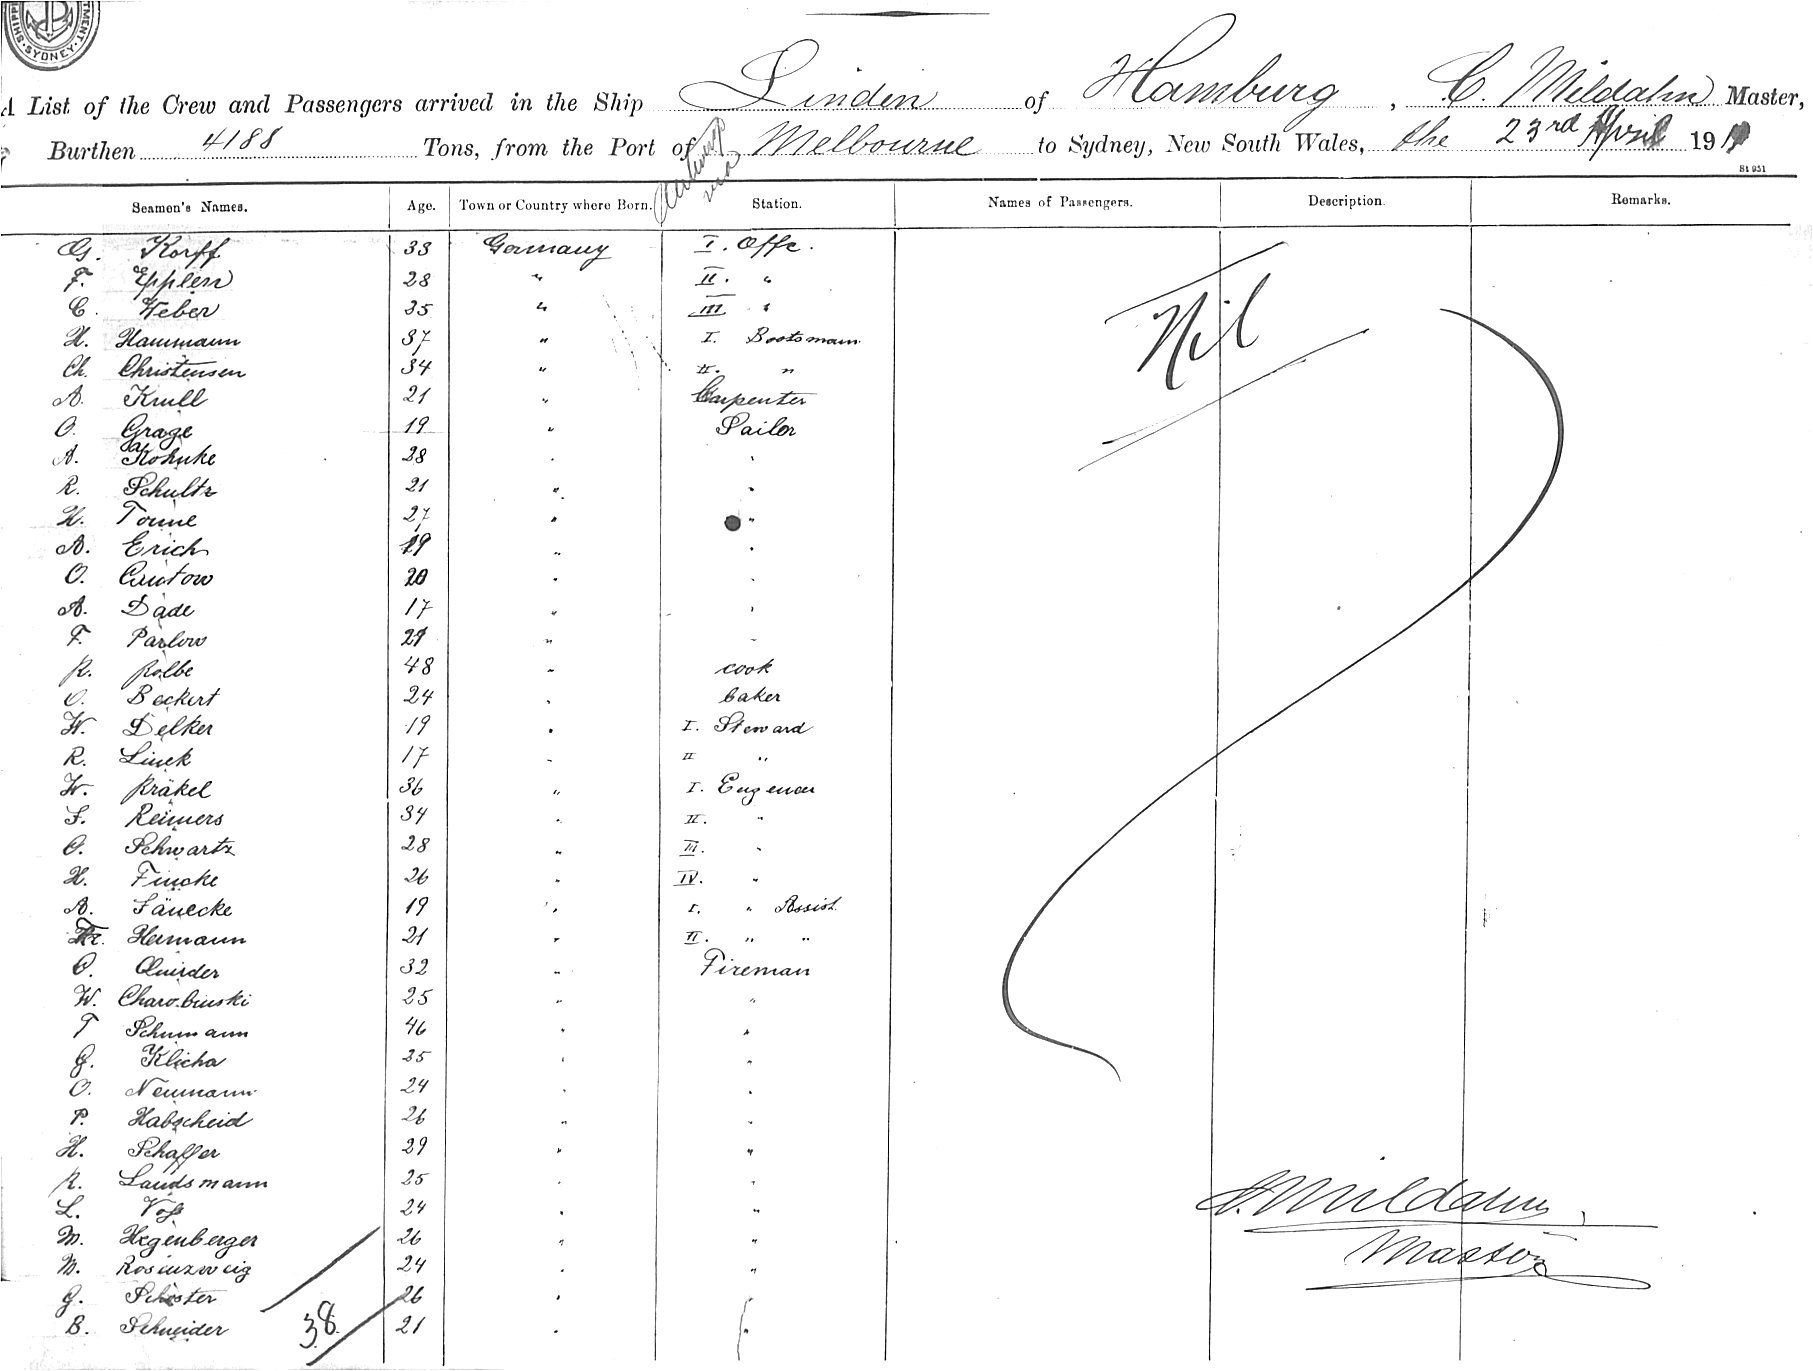 SHIPPI
TMENT
SYDNEY
A List of the Crew and Passengers arrived in the Ship Linden of Hamburg, C. Mildahn Master,
Burthen 4188 Tons, from the Port of Melbourne to Sydney, New South Wales, the 23rd April 191
via
St 951
Seamen's Names. Age. Town or Country where Born. Station. Names of Passengers. Description. Remarks.
G. Korff 33 Germany I. Offc.
F. Epplen 28 " II. "
C. Weber 35 " III "
H. Hammann 37 " I. Bootsmann
Ch. Christensen 34 " II. "
A. Krull 21 " Carpenter
O. Grage 19 " Sailor
A. Kohnke 28 " "
R. Schultz 21 " "
H. Tonne 27 " "
A. Erich 19 " "
O. Cantow 20 " "
A. Dade 17 " "
F. Parlow 21 " "
R. Kolbe 48 " cook
O. Beckert 24 " baker
W. Delker 19 " I. Steward
R. Linek 17 " II "
W. Kräkel 36 " I. Engeneer
F. Reimers 34 " II. "
O. Schwartz 28 " III. "
H. Fincke 26 " IV. "
A. Jänecke 19 " I. " Assist.
Fr. Hermann 21 " II. " "
O. Quirder 32 " Fireman
W. Charobinski 25 " "
T Schumann 46 " "
G. Klicha 25 " "
O. Neumann 24 " "
P. Habscheid 26 " "
H. Schaffer 29 " "
R. Landsmann 25 " "
L. Voß 24 " "
M. Hegenberger 26 " "
M. Rosenzweig 24 " "
G. Schister 26 " "
B. Schneider 21 " "
38
Nil
C. Mildahn,
Master